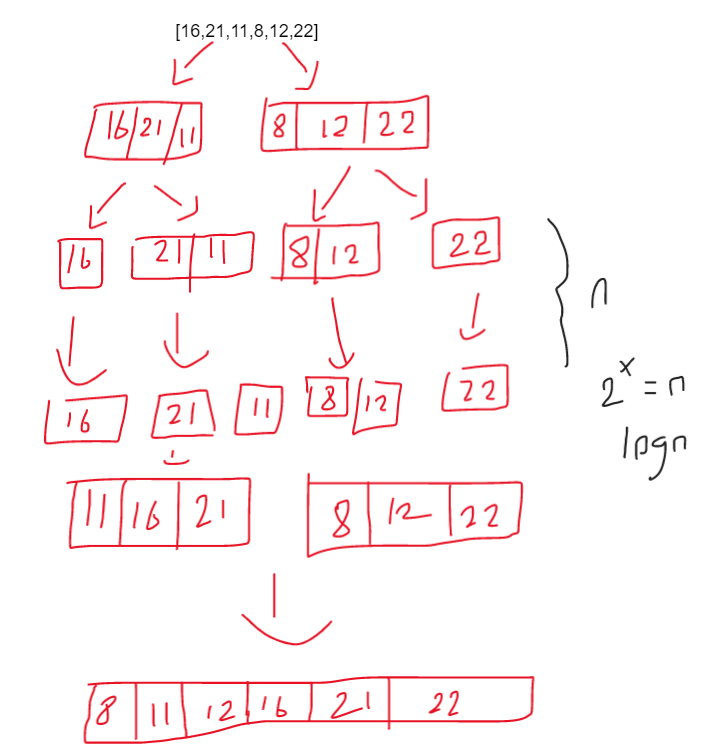 [16,21,11,8,12,22]
16 21 11 8 12 22
16 21 11 8 12 22
n
16 21 11 8 12 22
2^x = n
logn
11 16 21 8 12 22
8 11 12 16 21 22